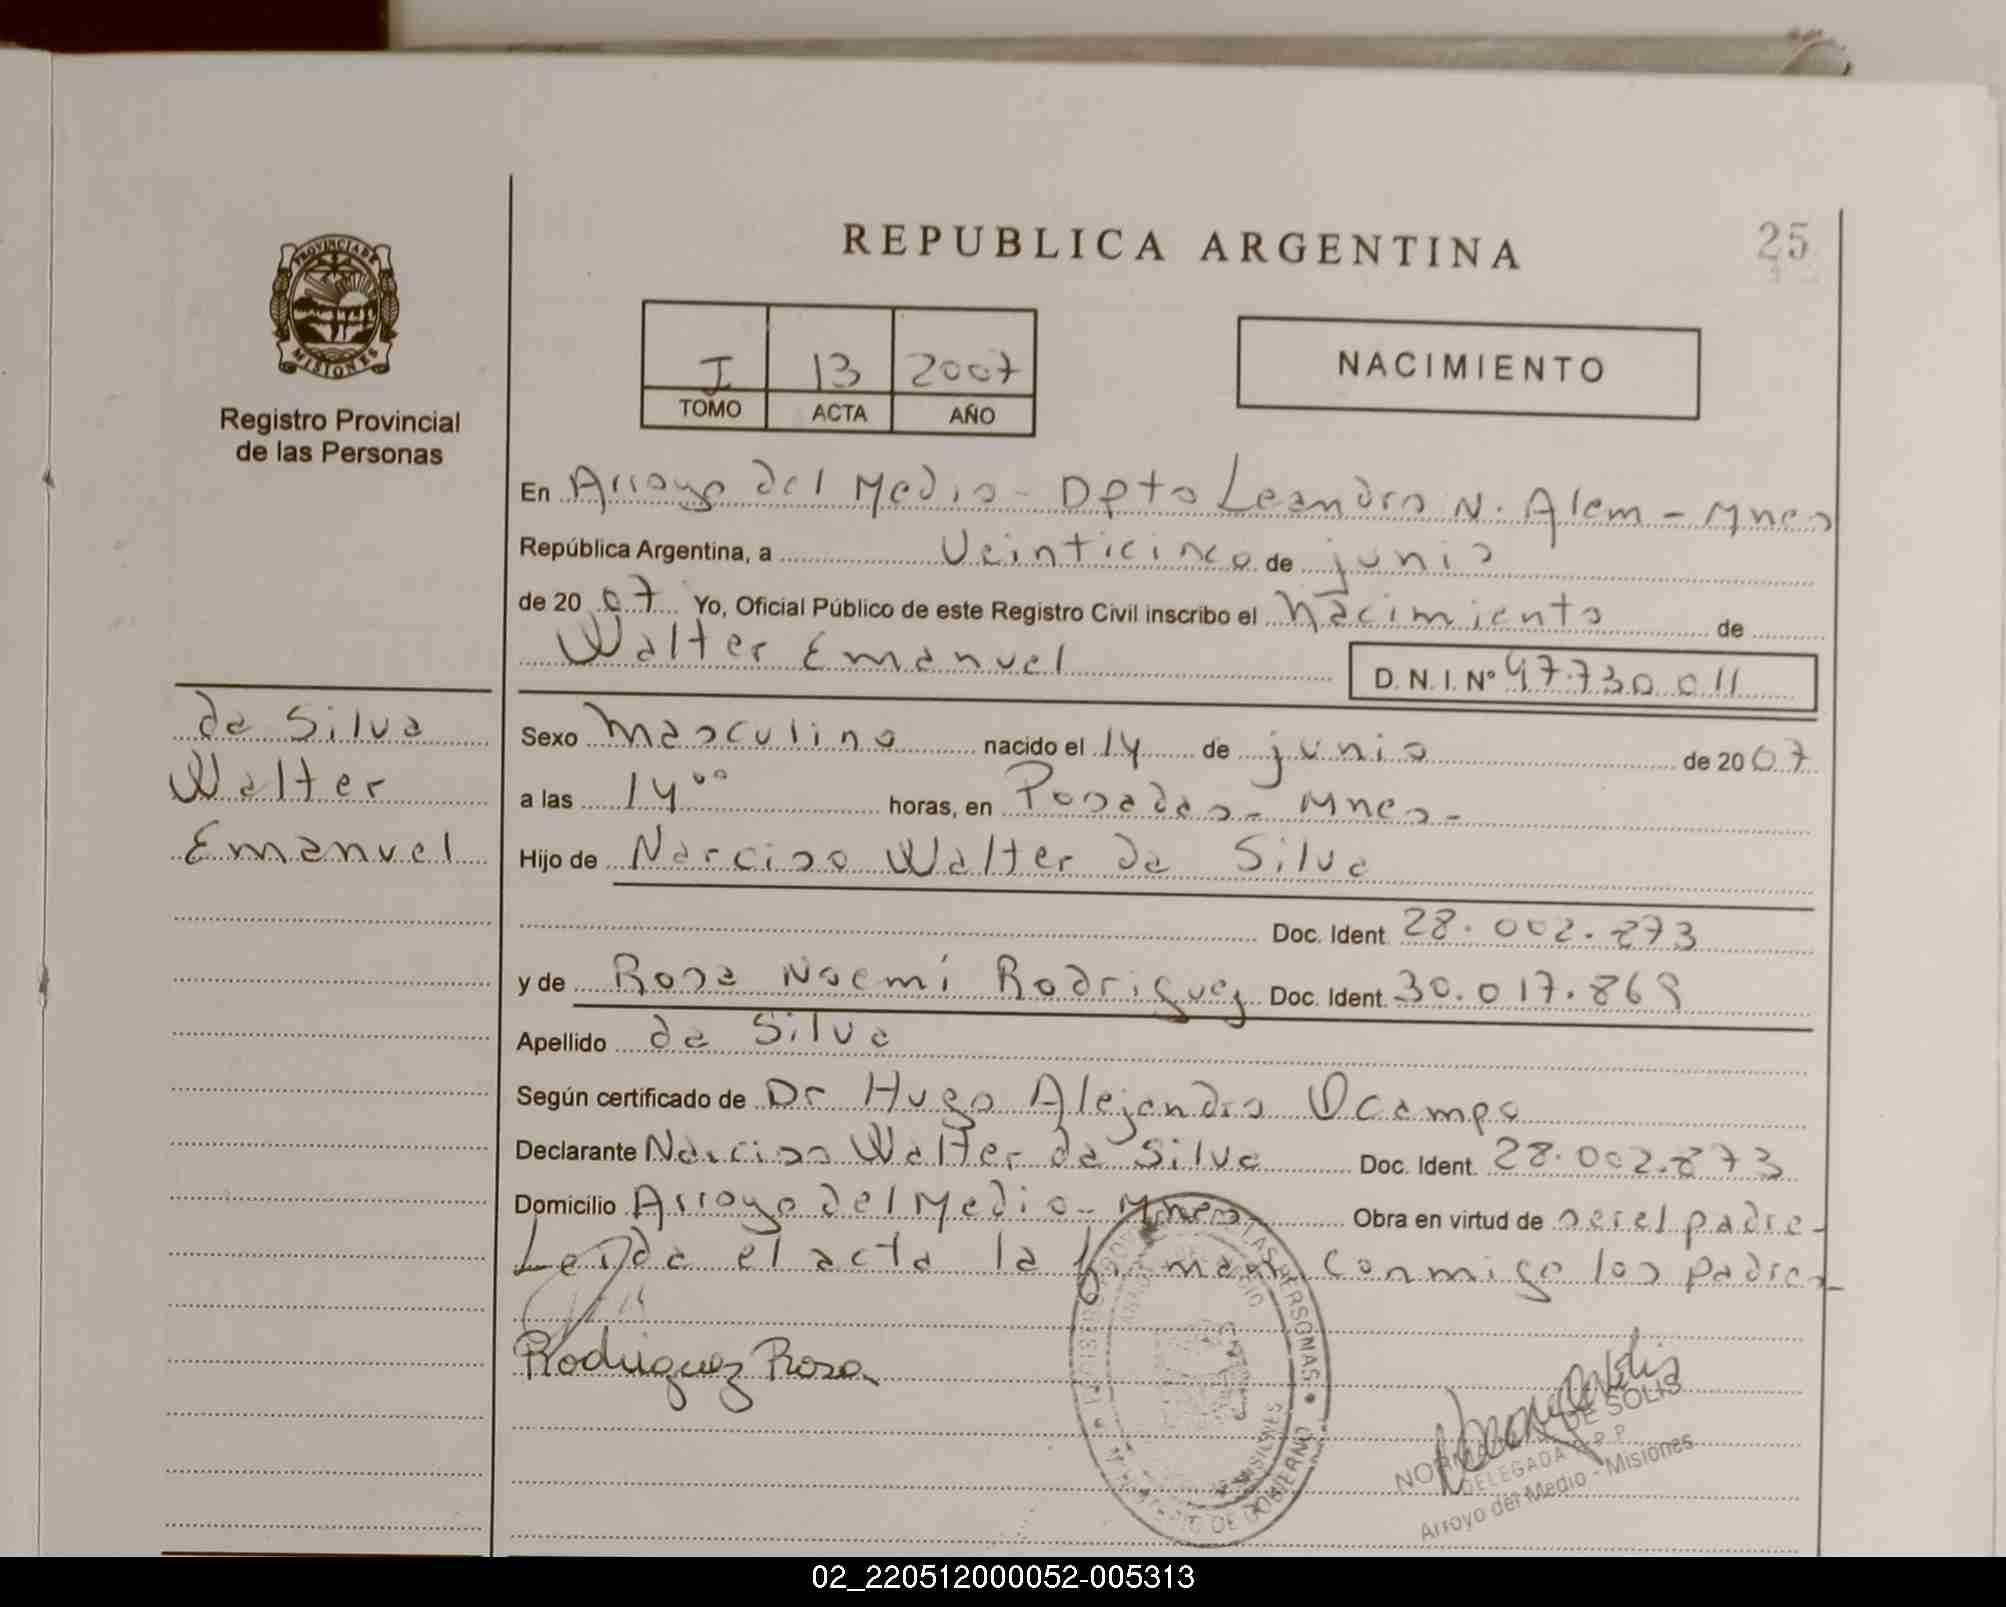 REPUBLICA ARGENTINA
25
PROVINCIA DE
MISIONES
Registro Provincial
de las Personas
I 13 2007
TOMO ACTA AÑO
NACIMIENTO
En Arroyo del Medio - Dpto Leandro N. Alem - Mnes
República Argentina, a Veinticinco de junio
de 20 07 Yo, Oficial Público de este Registro Civil inscribo el Nacimiento de
Walter Emanuel D. N. I. Nº 47.730.011
da Silva
Walter
Emanuel
Sexo Masculino nacido el 14 de junio de 20 07
a las 14 00 horas, en Posadas - Mnes -
Hijo de Narciso Walter da Silva
Doc. Ident. 28.002.273
y de Rosa Noemí Rodriguez Doc. Ident. 30.017.869
Apellido da Silva
Según certificado de Dr Hugo Alejandro Ocampo
Declarante Narciso Walter da Silva Doc. Ident. 28.002.273
Domicilio Arroyo del Medio - Mnes Obra en virtud de ser el padre -
Leida el acta la firman conmigo los padres -
Rodriguez Rosa
LAS PERSONAS
MISIONES
DE GOBIERNO
DE SOLIS
DELEGADA R.P.P.
Arroyo del Medio - Misiones
02_220512000052-005313